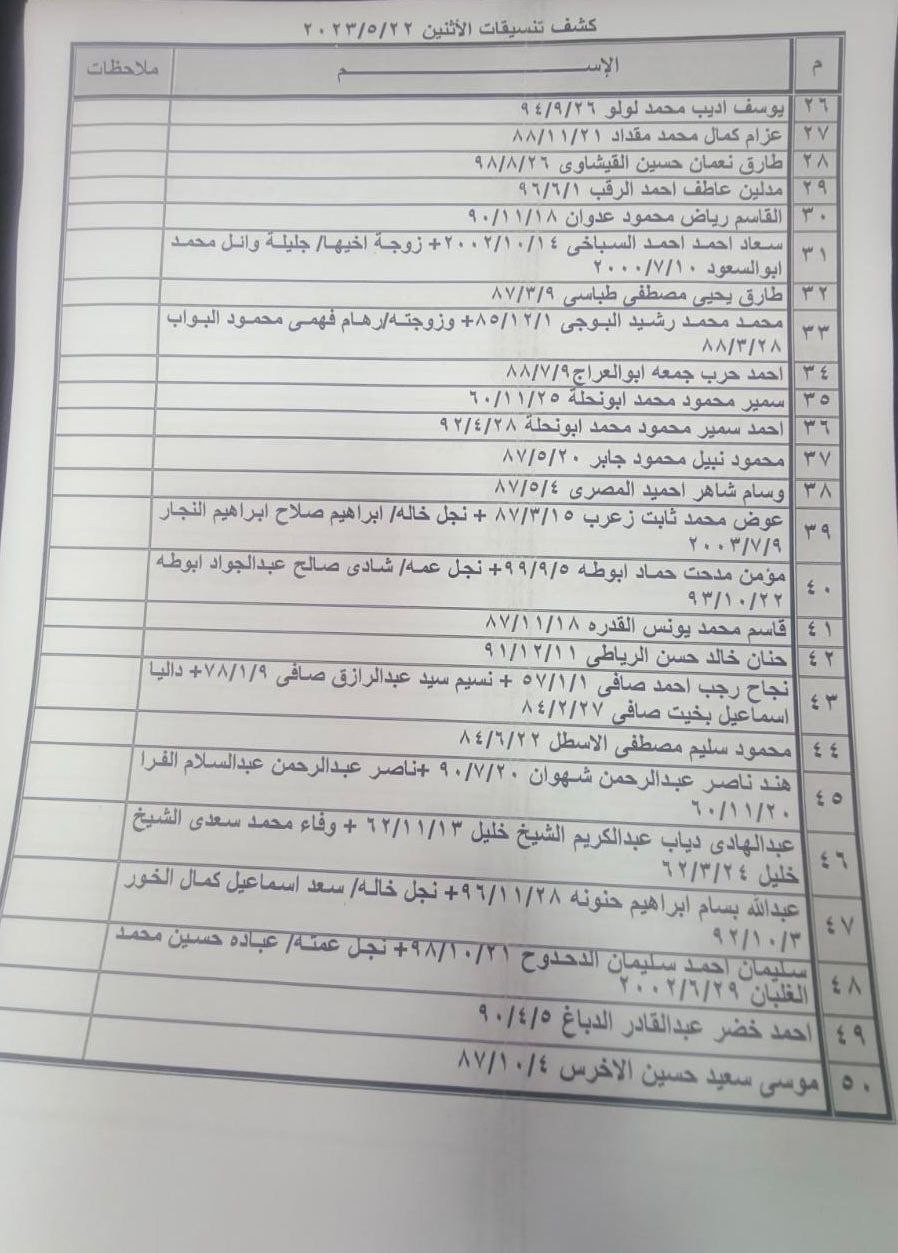 كشف تنسيقات الأثنين ٢٠٢٣/٥/٢٢
م الإســـــــــم ملاحظات
٢٦ يوسف اديب محمد لولو ٩٤/٩/٢٦
٢٧ عزام كمال محمد مقداد ٨٨/١١/٢١
٢٨ طارق نعمان حسين القيشاوى ٩٨/٨/٢٦
٢٩ مدلين عاطف احمد الرقب ٩٦/٦/١
٣٠ القاسم رياض محمود عدوان ٩٠/١١/١٨
٣١ سعاد احمد احمد السباخى ٢٠٠٢/١٠/١٤+ زوجة اخيها/ جليلة وائل محمد
ابوالسعود ٢٠٠٠/٧/١٠
٣٢ طارق يحيى مصطفى طباسى ٨٧/٣/٩
٣٣ محمد محمد رشيد البوجى ٨٥/١٢/١+ وزوجته/رهام فهمى محمود البواب
٨٨/٣/٢٨
٣٤ احمد حرب جمعه ابوالعراج٨٨/٧/٩
٣٥ سمير محمود محمد ابونحلة ٦٠/١١/٢٥
٣٦ احمد سمير محمود محمد ابونحلة ٩٢/٤/٢٨
٣٧ محمود نبيل محمود جابر ٨٧/٥/٢٠
٣٨ وسام شاهر احميد المصرى ٨٧/٥/٤
٣٩ عوض محمد ثابت زعرب ٨٧/٣/١٥ + نجل خاله/ ابراهيم صلاح ابراهيم النجار
٢٠٠٣/٧/٩
٤٠ مؤمن مدحت حماد ابوطه ٩٩/٩/٥+ نجل عمه/ شادى صالح عبدالجواد ابوطه
٩٣/١٠/٢٢
٤١ قاسم محمد يونس القدره ٨٧/١١/١٨
٤٢ حنان خالد حسن الرياطى ٩١/١٢/١١
٤٣ نجاح رجب احمد صافى ٥٧/١/١ + نسيم سيد عبدالرازق صافى ٧٨/١/٩+ داليا
اسماعيل بخيت صافى ٨٤/٢/٢٧
٤٤ محمود سليم مصطفى الاسطل ٨٤/٦/٢٢
٤٥ هند ناصر عبدالرحمن شهوان ٩٠/٧/٢٠ +ناصر عبدالرحمن عبدالسلام الفرا
٦٠/١١/٢٠
٤٦ عبدالهادى دياب عبدالكريم الشيخ خليل ٦٢/١١/١٣ + وفاء محمد سعدى الشيخ
خليل ٦٢/٣/٢٤
٤٧ عبدالله بسام ابراهيم حنونه ٩٦/١١/٢٨+ نجل خاله/ سعد اسماعيل كمال الخور
٩٢/١٠/٣
٤٨ سليمان احمد سليمان الدحدوح ٩٨/١٠/٢١+ نجل عمته/ عباده حسين محمد
الغلبان ٢٠٠٢/٦/٢٩
٤٩ احمد خضر عبدالقادر الدباغ ٩٠/٤/٥
٥٠ موسى سعيد حسين الاخرس ٨٧/١٠/٤